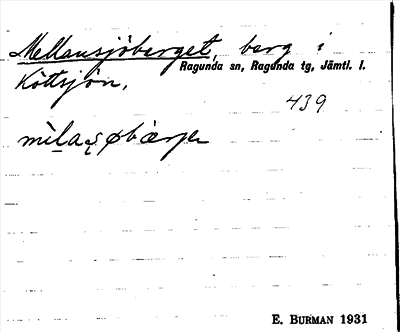 Mellansjöberget, berg i
Ragunda sn, Ragunda tg, Jämtl. l.
Köttsjön.
439
E. BURMAN 1931